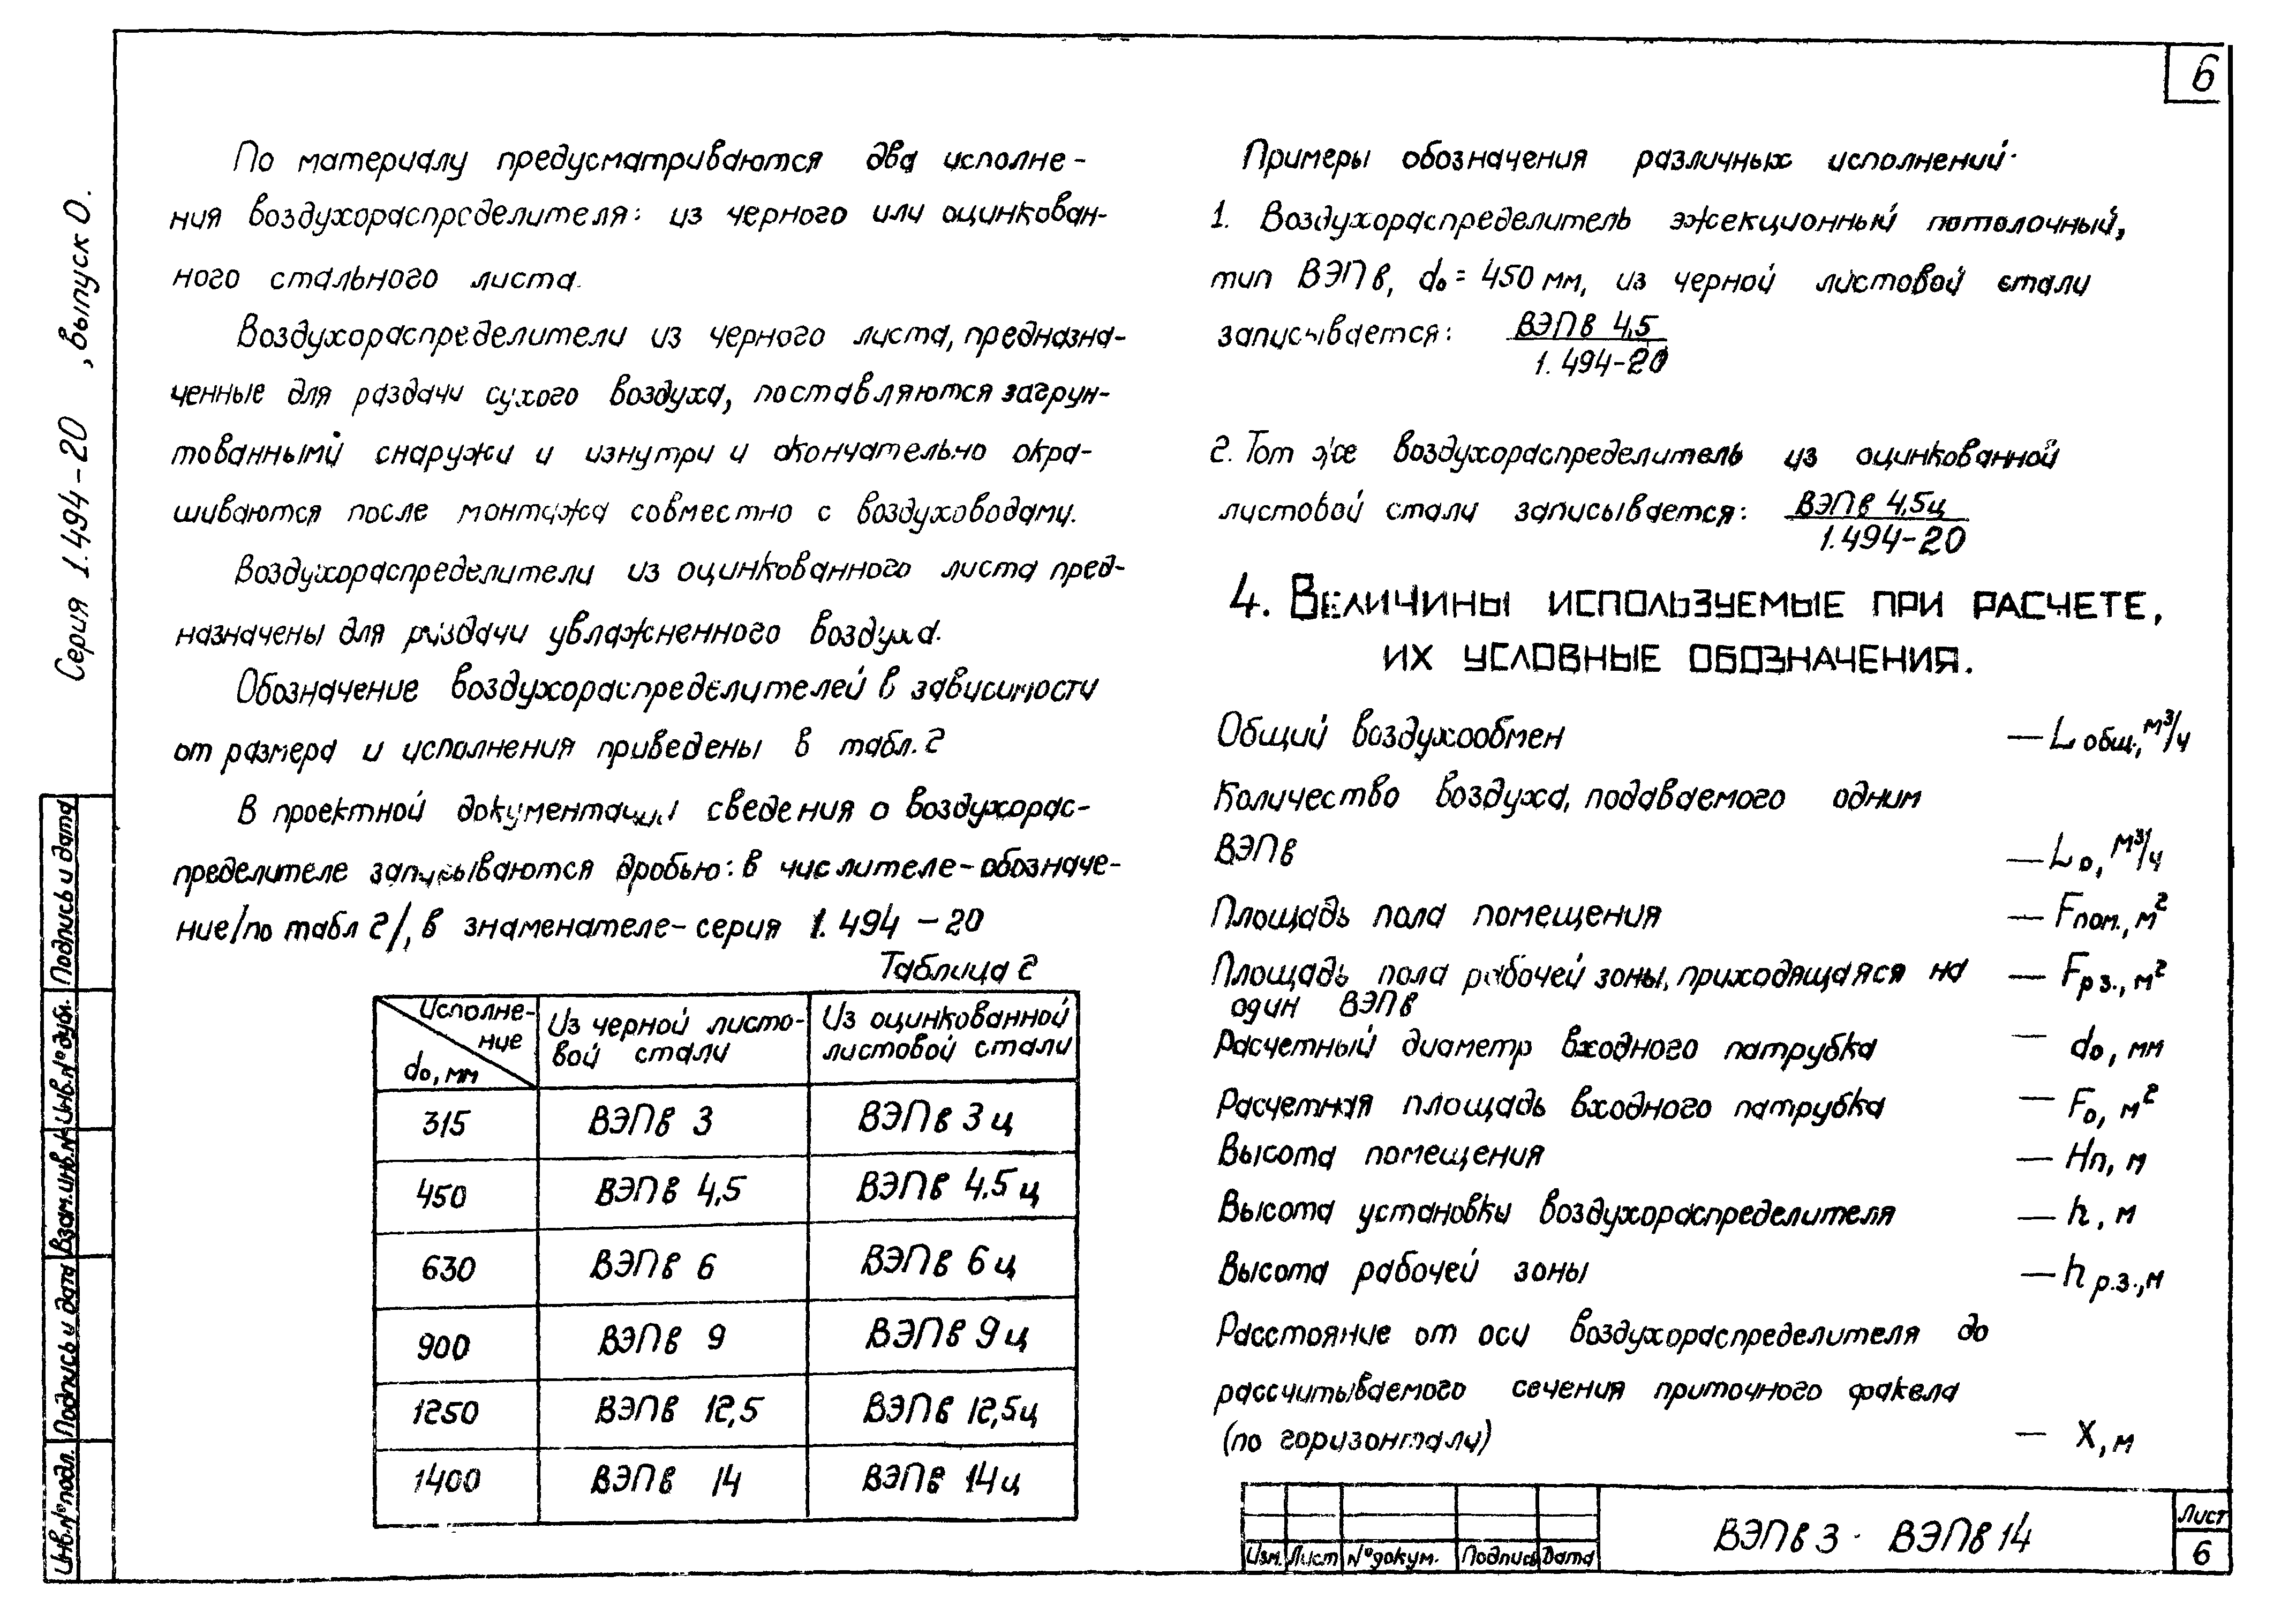 6
Серия 1.494-20 , выпуск 0.
По материалу предусматриваются два исполне-
ния воздухораспределителя: из черного или оцинкован-
ного стального листа.
Воздухораспределители из черного листа, предназна-
ченные для раздачи сухого воздуха, поставляются загрун-
тованными снаружи и изнутри и окончательно окра-
шиваются после монтажа совместно с воздуховодами.
Воздухораспределители из оцинкованного листа пред-
назначены для раздачи увлажненного воздуха.
Обозначение воздухораспределителей в зависимости
от размера и исполнения приведены в табл. 2
В проектной документации сведения о воздухорас-
пределителе записываются дробью: в числителе - обозначе-
ние /по табл 2/, в знаменателе - серия 1.494-20
Таблица 2
Исполне-
ние
d₀, мм
Из черной листо-
вой стали
Из оцинкованной
листовой стали
315 ВЭПв 3 ВЭПв 3ц
450 ВЭПв 4,5 ВЭПв 4.5ц
630 ВЭПв 6 ВЭПв 6ц
900 ВЭПв 9 ВЭПв 9ц
1250 ВЭПв 12,5 ВЭПв 12,5ц
1400 ВЭПв 14 ВЭПв 14ц
Примеры обозначения различных исполнений.
1. Воздухораспределитель эжекционный потолочный,
тип ВЭПв, d₀ = 450 мм, из черной листовой стали
записывается: ВЭПв 4,5
1.494-20
2. Тот же воздухораспределитель из оцинкованной
листовой стали записывается: ВЭПв 4,5ц
1.494-20
4. ВЕЛИЧИНЫ ИСПОЛЬЗУЕМЫЕ ПРИ РАСЧЕТЕ,
ИХ УСЛОВНЫЕ ОБОЗНАЧЕНИЯ.
Общий воздухообмен — L общ., м³/ч
Количество воздуха, подаваемого одним
ВЭПв — L₀, м³/ч
Площадь пола помещения — Fпом., м²
Площадь пола рабочей зоны, приходящаяся на — Fр.з., м²
один ВЭПв
Расчетный диаметр входного патрубка — d₀, мм
Расчетная площадь входного патрубка — F₀, м²
Высота помещения — Нп, м
Высота установки воздухораспределителя — h, м
Высота рабочей зоны — h р.з., м
Расстояние от оси воздухораспределителя до
рассчитываемого сечения приточного факела
(по горизонтали) — X, м
Изм. Лист №докум. Подпись Дата
ВЭПв 3 - ВЭПв 14
Лист
6
Инв.№подл. Подпись и дата Взам.инв.№ Инв.№дубл. Подпись и дата